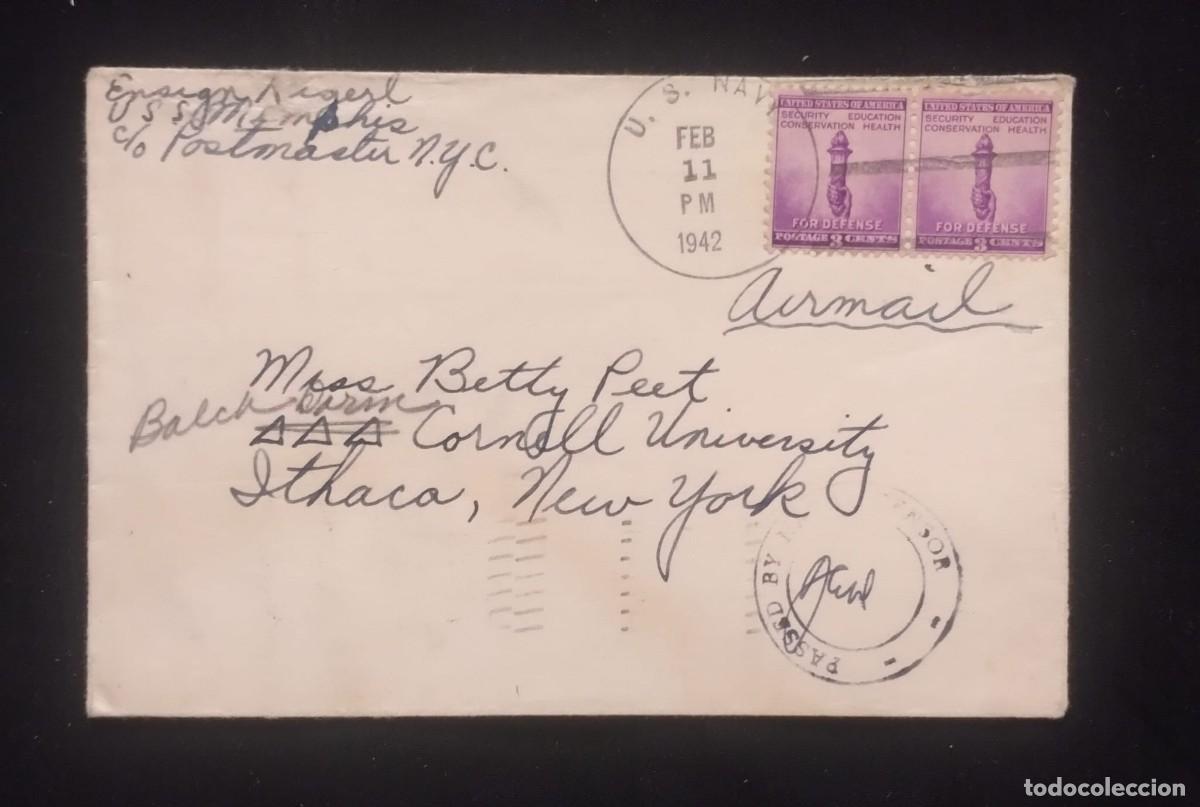 Ensign
U S S Memphis
c/o Postmaster N.Y.C.
U. S. NAVY
FEB
11
PM
1942
UNITED STATES OF AMERICA
SECURITY EDUCATION
CONSERVATION HEALTH
FOR DEFENSE
POSTAGE 3 CENTS
UNITED STATES OF AMERICA
SECURITY EDUCATION
CONSERVATION HEALTH
FOR DEFENSE
POSTAGE 3 CENTS
Airmail
Miss Betty Peet
Balch Dorm
ΔΔΔ Cornell University
Ithaca, New York
PASSED BY
todocoleccion